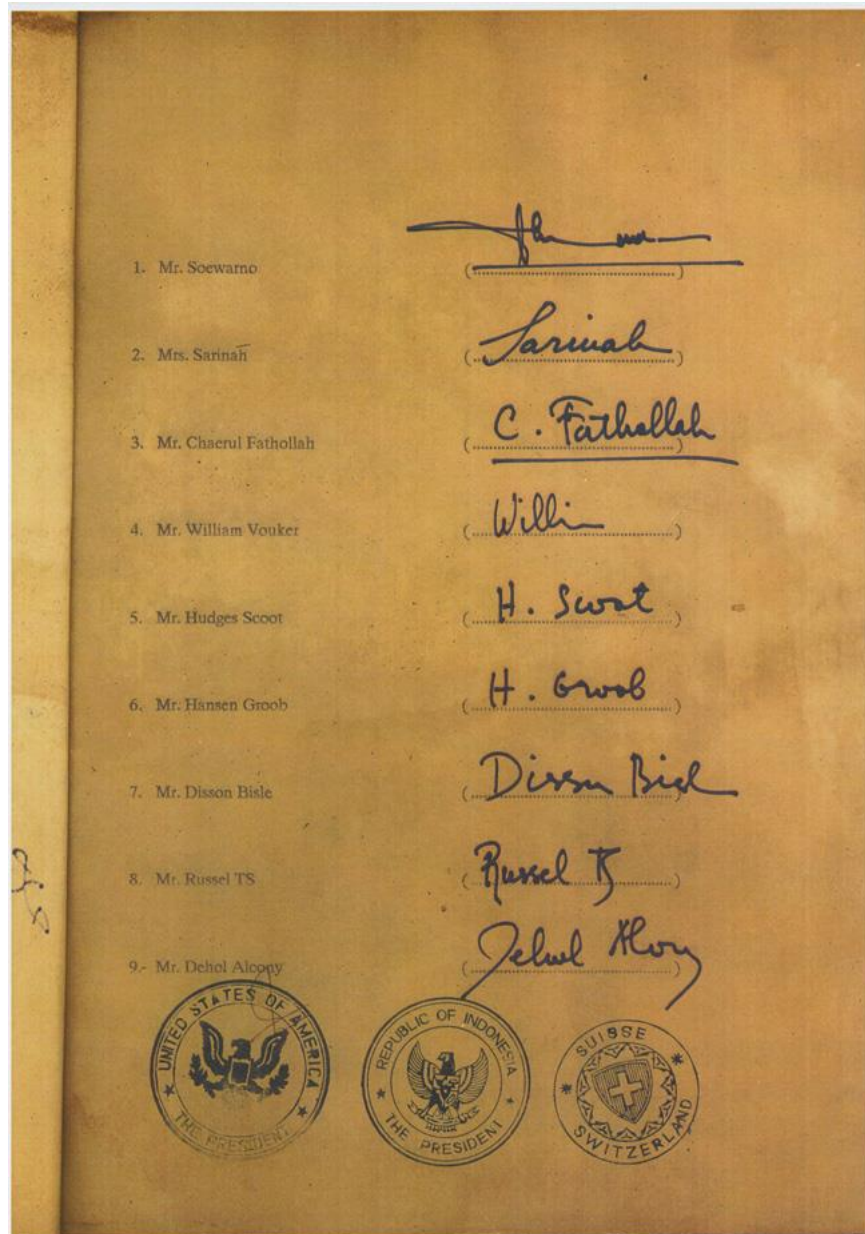 1. Mr. Soewarno (....................)
2. Mrs. Sarinah (Sarinah)
3. Mr. Chaerul Fathollah (C. Fathollah)
4. Mr. William Vouker (....................)
5. Mr. Hudges Scoot (H. Scoot)
6. Mr. Hansen Groob (H. Groob)
7. Mr. Disson Bisle (....................)
8. Mr. Russel TS (Russel TS)
9.- Mr. Dehol Alcony (....................)
UNITED STATES OF AMERICA
THE PRESIDENT
REPUBLIC OF INDONESIA
THE PRESIDENT
SUISSE
SWITZERLAND